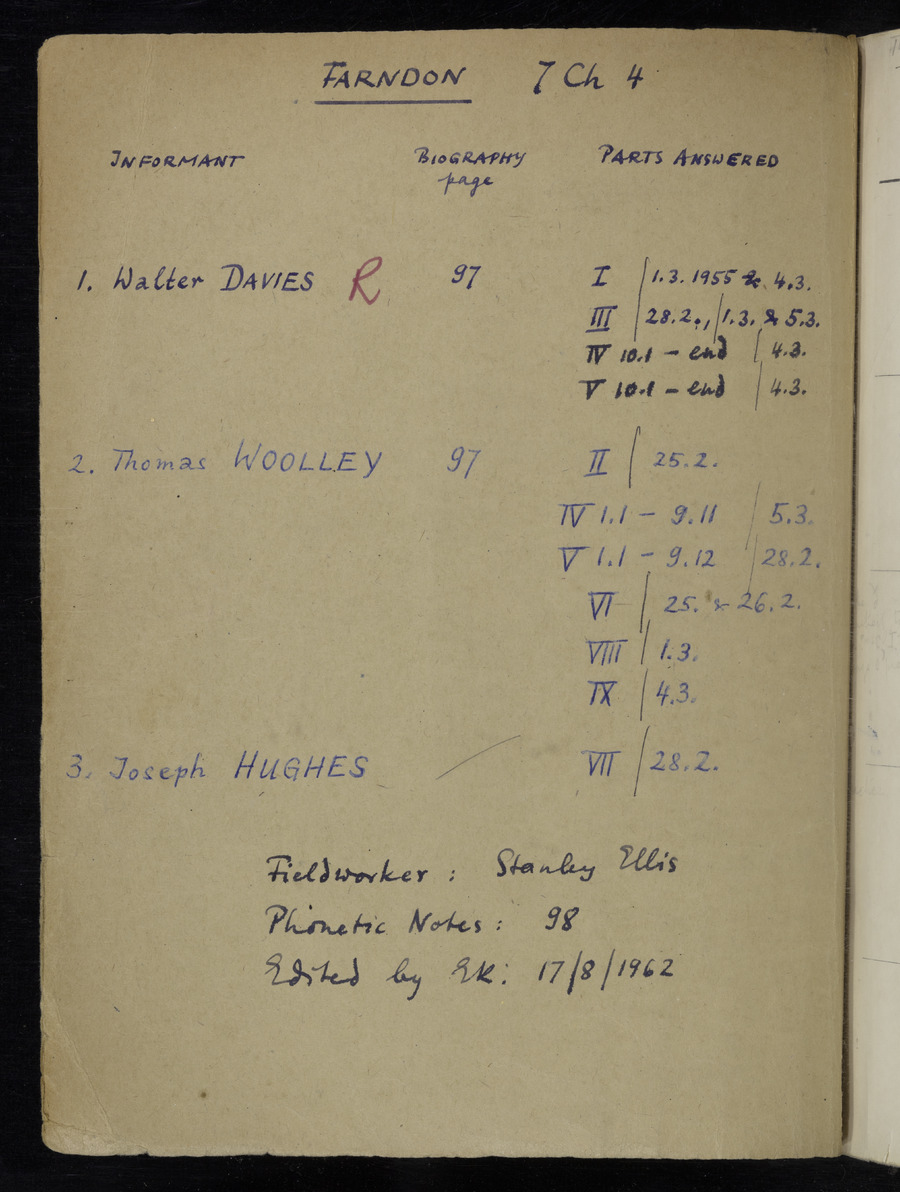 FARNDON 7 Ch 4
INFORMANT BIOGRAPHY page PARTS ANSWERED
1. Walter DAVIES R 97 I / 1.3.1955 & 4.3.
III / 28.2., / 1.3. & 5.3.
IV 10.1 – end / 4.3.
V 10.1 – end / 4.3.
2. Thomas WOOLLEY 97 II / 25.2.
IV 1.1 – 9.11 / 5.3.
V 1.1 – 9.12 / 28.2.
VI / 25. & 26.2.
VIII / 1.3.
IX / 4.3.
3. Joseph HUGHES / VII / 28.2.
Fieldworker : Stanley Ellis
Phonetic Notes : 98
Edited by EK: 17/8/1962